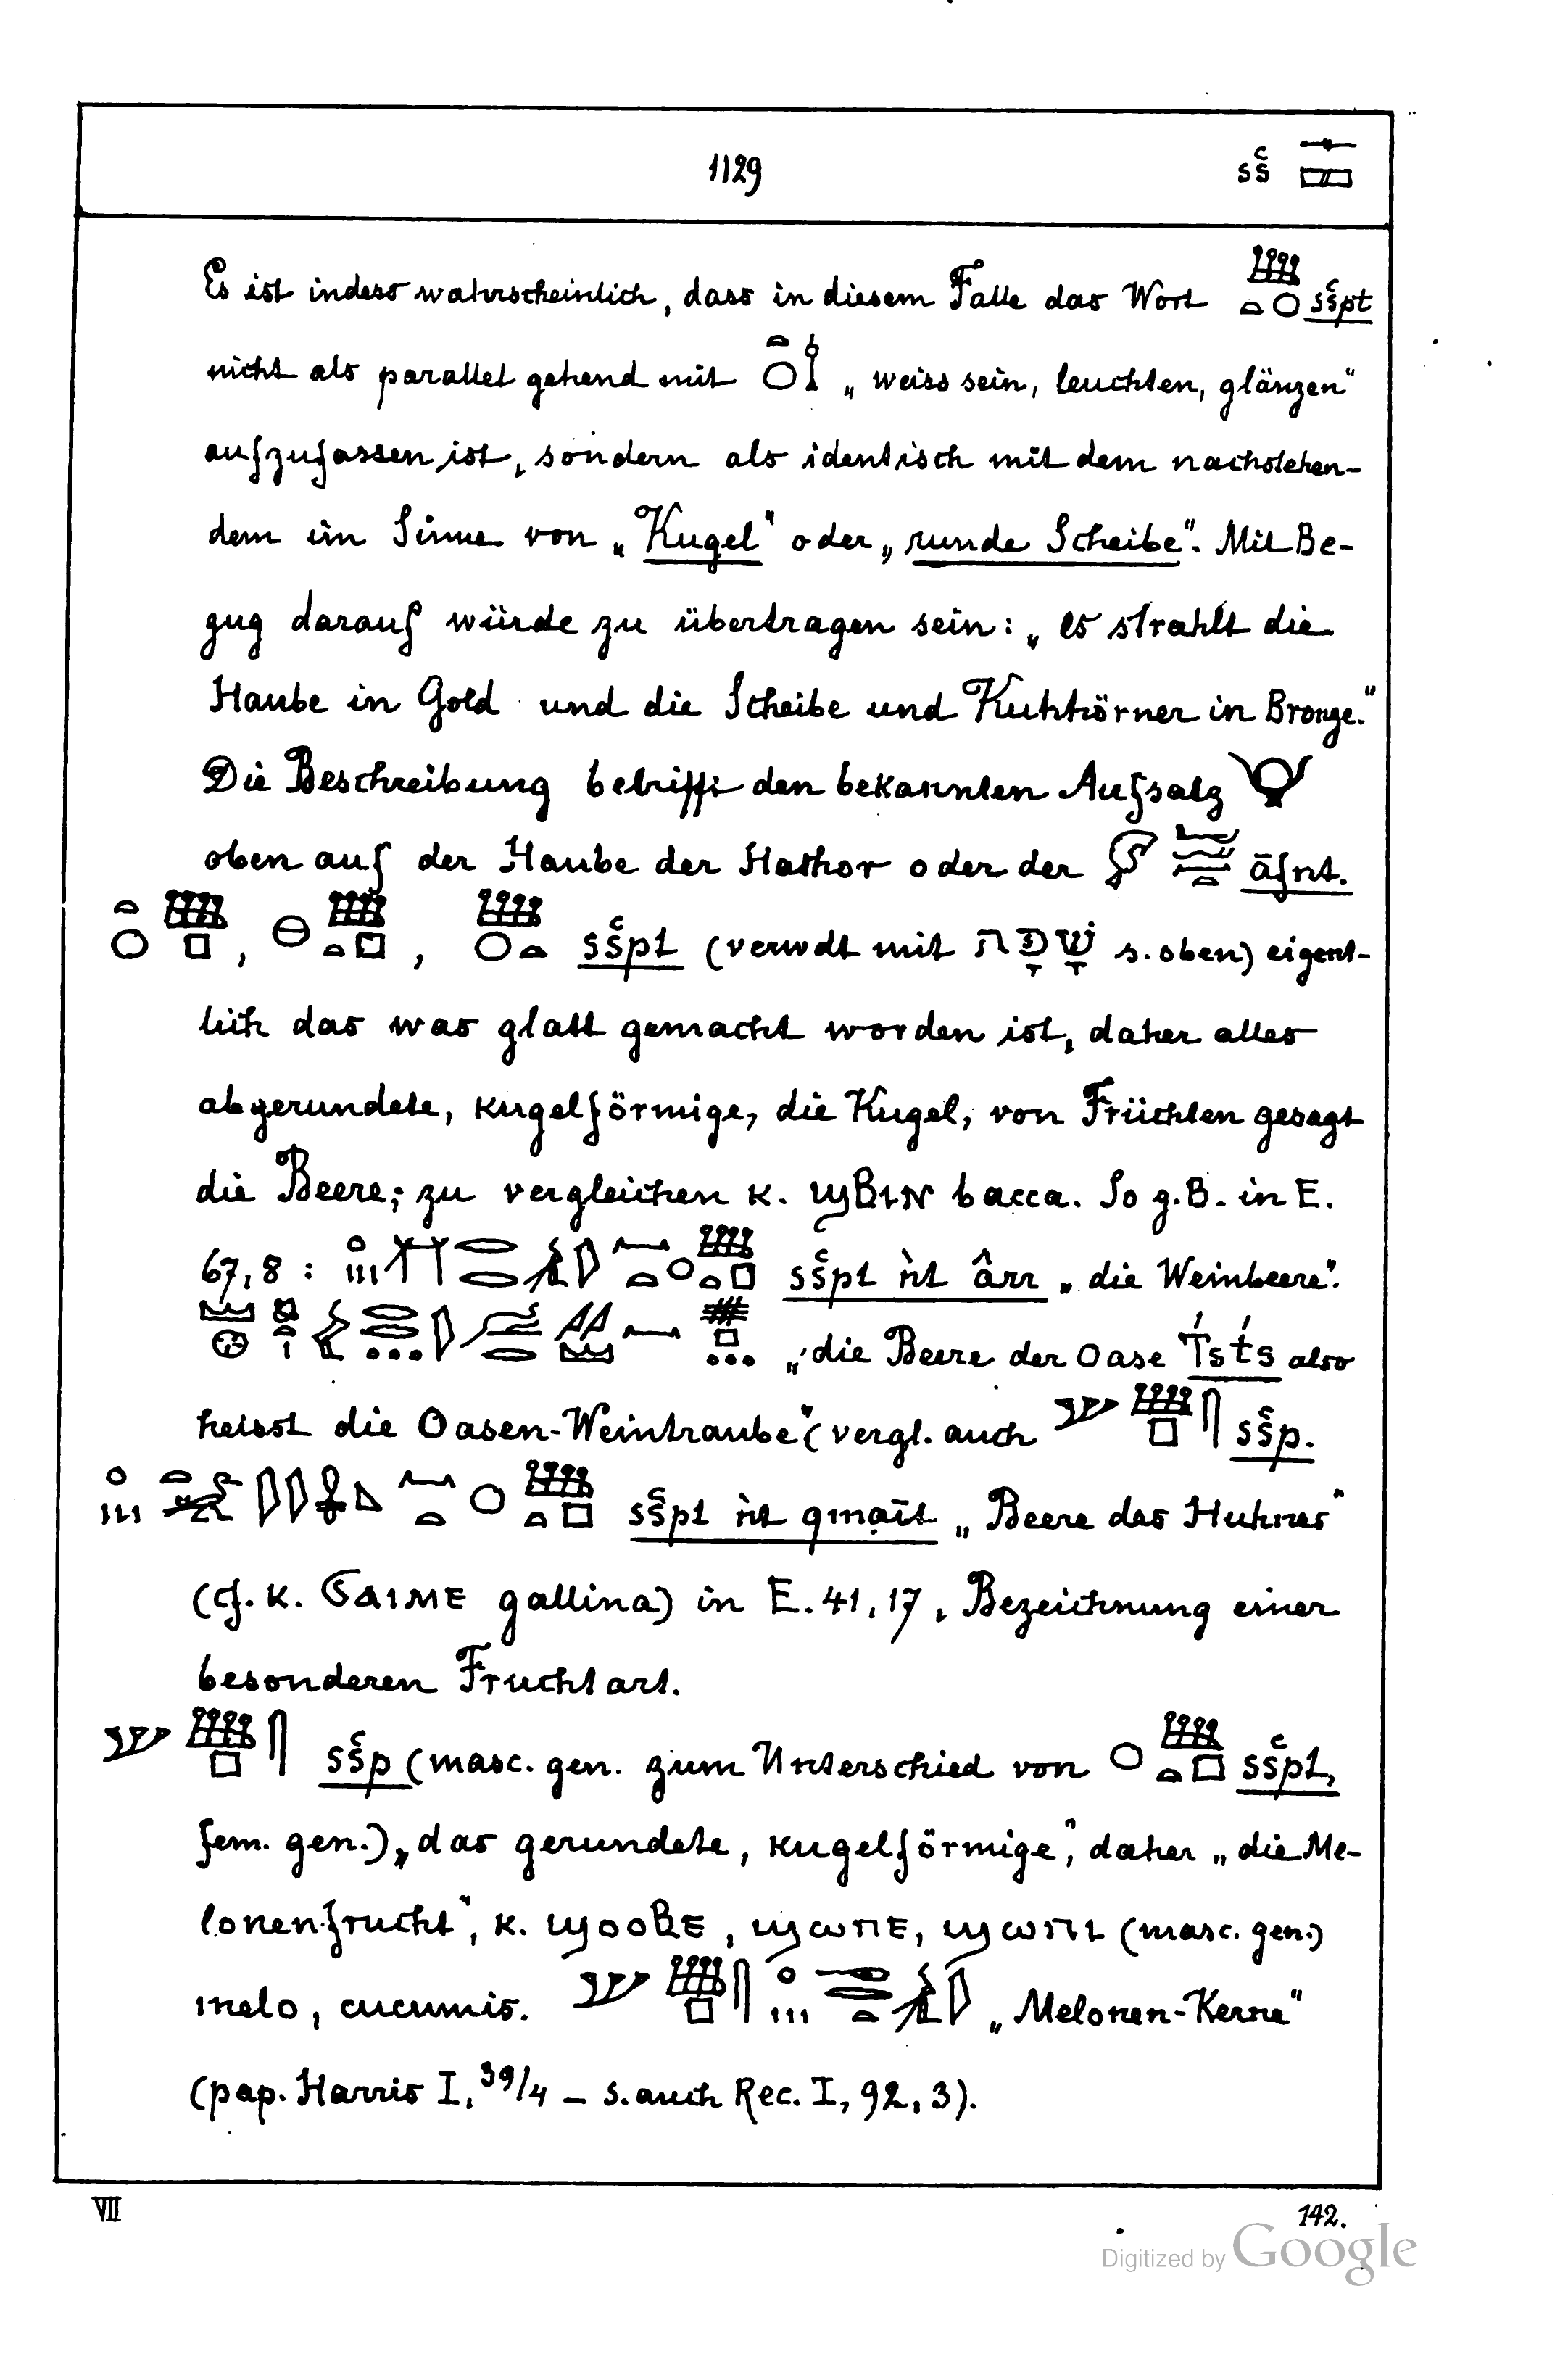 1129 sš
Es ist indess wahrscheinlich, dass in diesem Falle das Wort sšpt
nicht als parallel gehend mit „weiss sein, leuchten, glänzen"
aufzufassen ist, sondern als identisch mit dem nachstehen-
dem im Sinne von „Kugel" oder „runde Scheibe". Mit Be-
zug darauf würde zu übertragen sein: „es strahlt die
Haube in Gold und die Scheibe und Kuhhörner in Bronze."
Die Beschreibung betrifft den bekannten Aufsatz
oben auf der Haube der Hathor oder der āfnt.
, , sšpt (verwdt mit שָׁפָה s. oben) eigent-
lich das was glatt gemacht worden ist, daher alles
abgerundete, kugelförmige, die Kugel, von Früchten gesagt
die Beere; zu vergleichen K. ϣⲃⲓⲛ bacca. So z.B. in E.
67,8 : sšpt ǹt ârr „die Weinbeere".
„die Beere der Oase T́st́s also
heisst die Oasen-Weintraube" (vergl. auch sšp.
sšpt ǹt qmạīt „Beere des Huhnes"
(cf. K. ϭⲁⲓⲙⲉ gallina) in E. 41,17, Bezeichnung einer
besonderen Fruchtart.
sšp (masc. gen. zum Unterschied von sšpt,
fem. gen.) „das gerundete, kugelförmige", daher „die Me-
lonenfrucht", K. ϣⲟⲟⲃⲉ, ϣⲱⲡⲉ, ϣⲱⲡⲓ (masc. gen.)
melo, cucumis. „Melonen-Kerne"
(pap. Harris I, 39/4 – s. auch Rec. I, 92, 3).
VII 142.
Digitized by Google